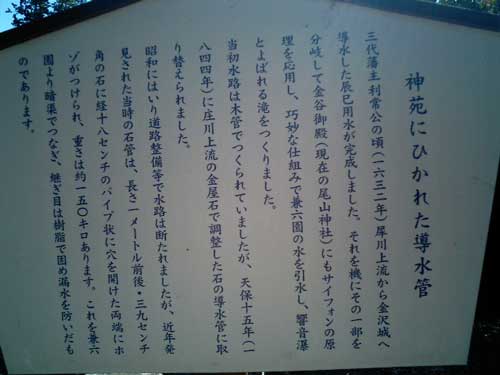 神苑にひかれた導水管
三代藩主利常公の頃(一六三二年)犀川上流から金沢城へ
導水した辰巳用水が完成しました。それを機にその一部を
分岐して金谷御殿(現在の尾山神社)にもサイフォンの原
理を応用し、巧妙な仕組みで兼六園の水を引水し、響音瀑
とよばれる滝をつくりました。
当初水路は木管でつくられていましたが、天保十五年(一
八四四年)に庄川上流の金屋石で調整した石の導水管に取
り替えられました。
昭和にはいり道路整備等で水路は断たれましたが、近年発
見された当時の石管は、長さ一メートル前後・三九センチ
角の石に経十八センチのパイプ状に穴を開けた両端にホ
ゾがつけられ、重さは約一五〇キロあります。これを兼六
園より暗渠でつなぎ、継ぎ目は樹脂で固め漏水を防いだも
のであります。